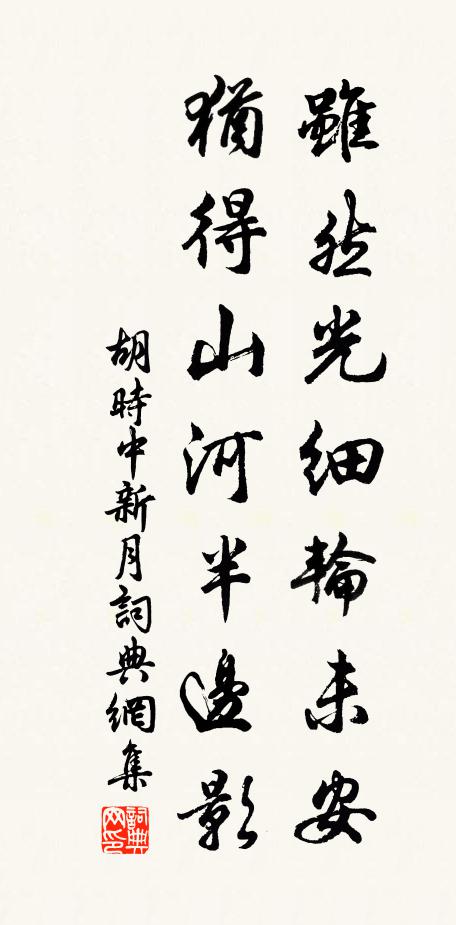 雖然光細輪未安
猶得山河半邊影
胡時中新月詞典網集
詞典网印